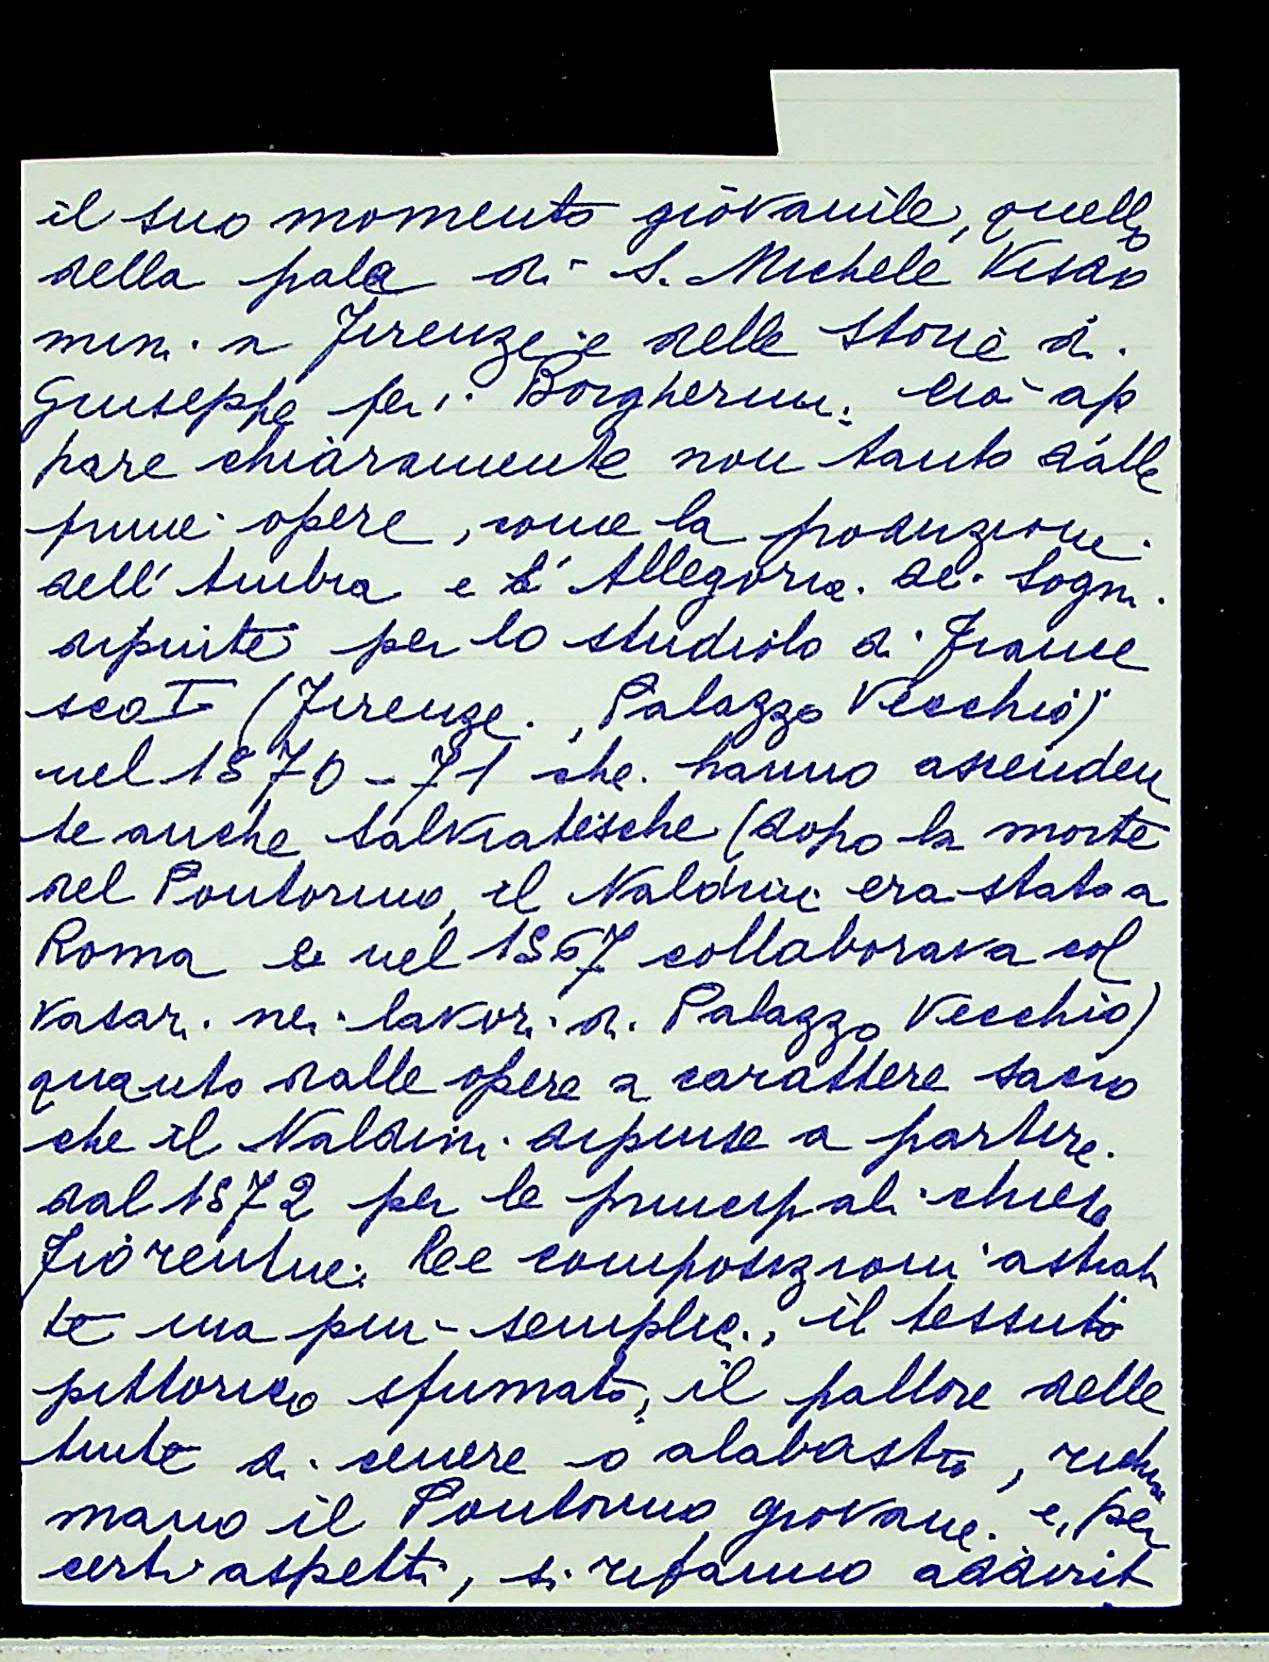 il suo momento giovanile, quello
della pala di S. Michele Visdo
mini a Firenze e delle storie di
Giuseppe per i Borgherini. Ciò ap
pare chiaramente non tanto dalle
prime opere, come la produzione
dell'Ambra e l'Allegoria dei Sogni
dipinte per lo studiolo di France
sco I (Firenze, Palazzo Vecchio)
nel 1570-71 che hanno ascenden
te anche salviatesche (dopo la morte
del Pontormo, il Naldini era stato a
Roma e nel 1567 collaborava col
Vasari nei lavori di Palazzo Vecchio)
quanto dalle opere a carattere sacro
che il Naldini dipinse a partire
dal 1572 per le principali chiese
fiorentine. Le composizioni astrat
te ma più semplici, il tessuto
pittorico sfumato, il pallore delle
tinte di cenere o alabastro, richia
mano il Pontormo giovane e, per
certi aspetti, si rifanno addirit